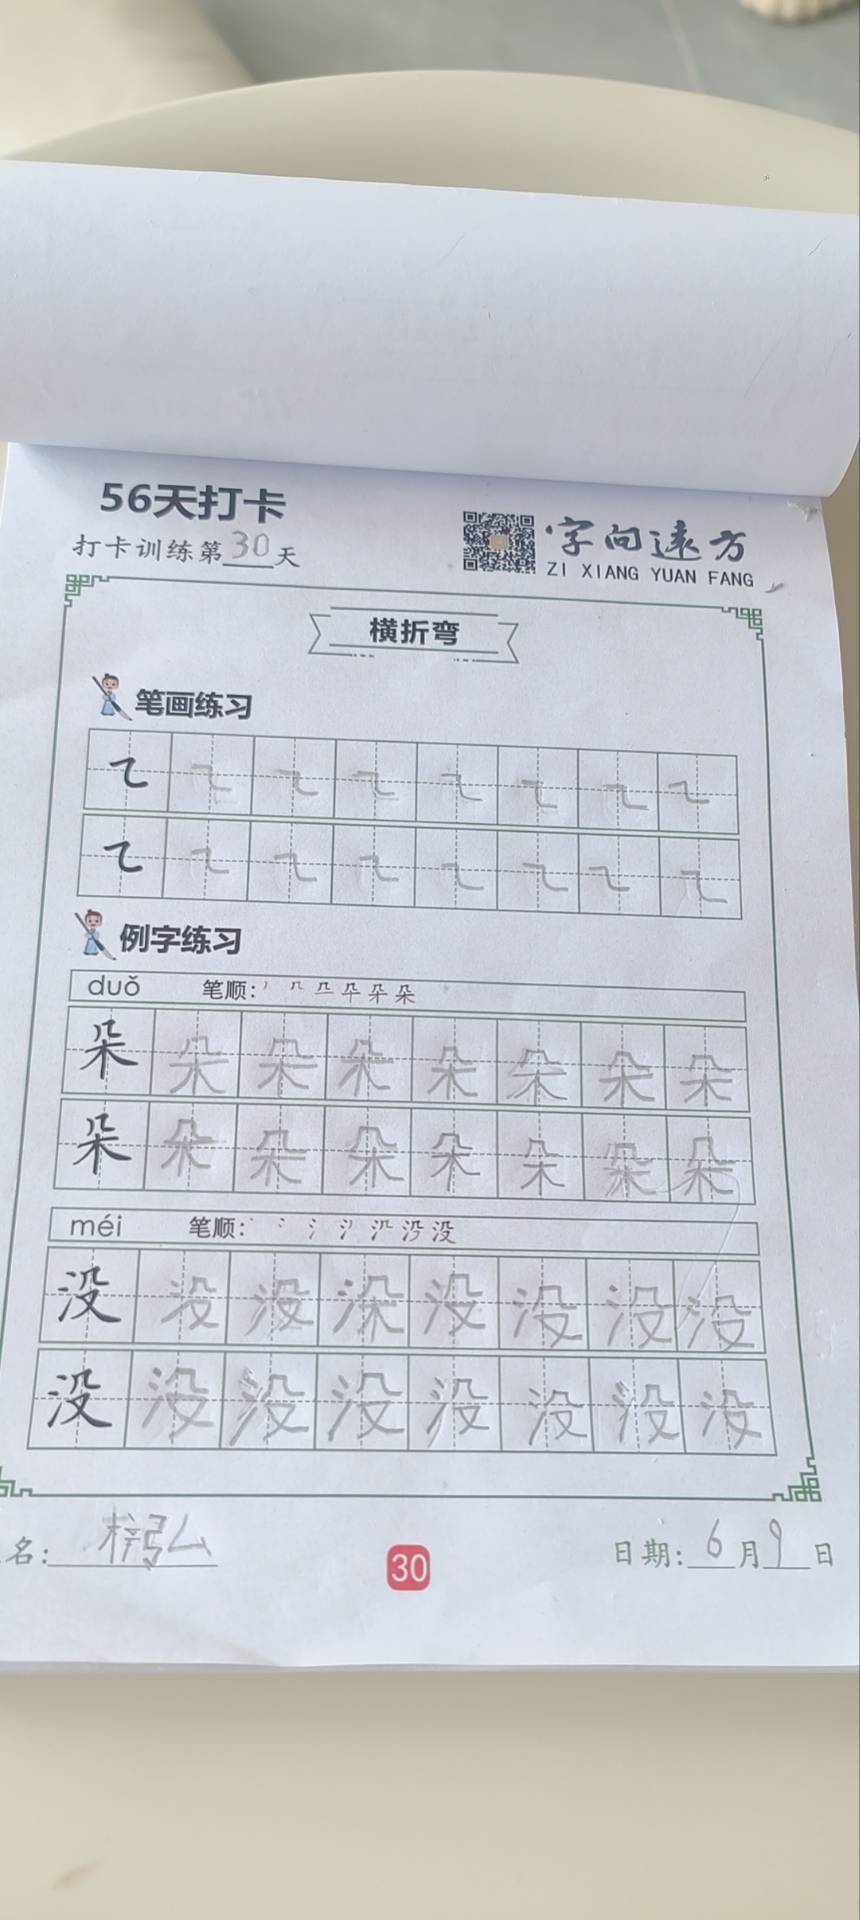 56天打卡
打卡训练第30天
字向远方
ZI XIANG YUAN FANG
横折弯
笔画练习
例字练习
duǒ 笔顺:
朵 朵 朵 朵 朵 朵 朵 朵
朵 朵 朵 朵 朵 朵 朵 朵
méi 笔顺:
没 没 没 没 没 没 没 没
没 没 没 没 没 没 没 没
名: 梓弘
30
日期: 6月9日